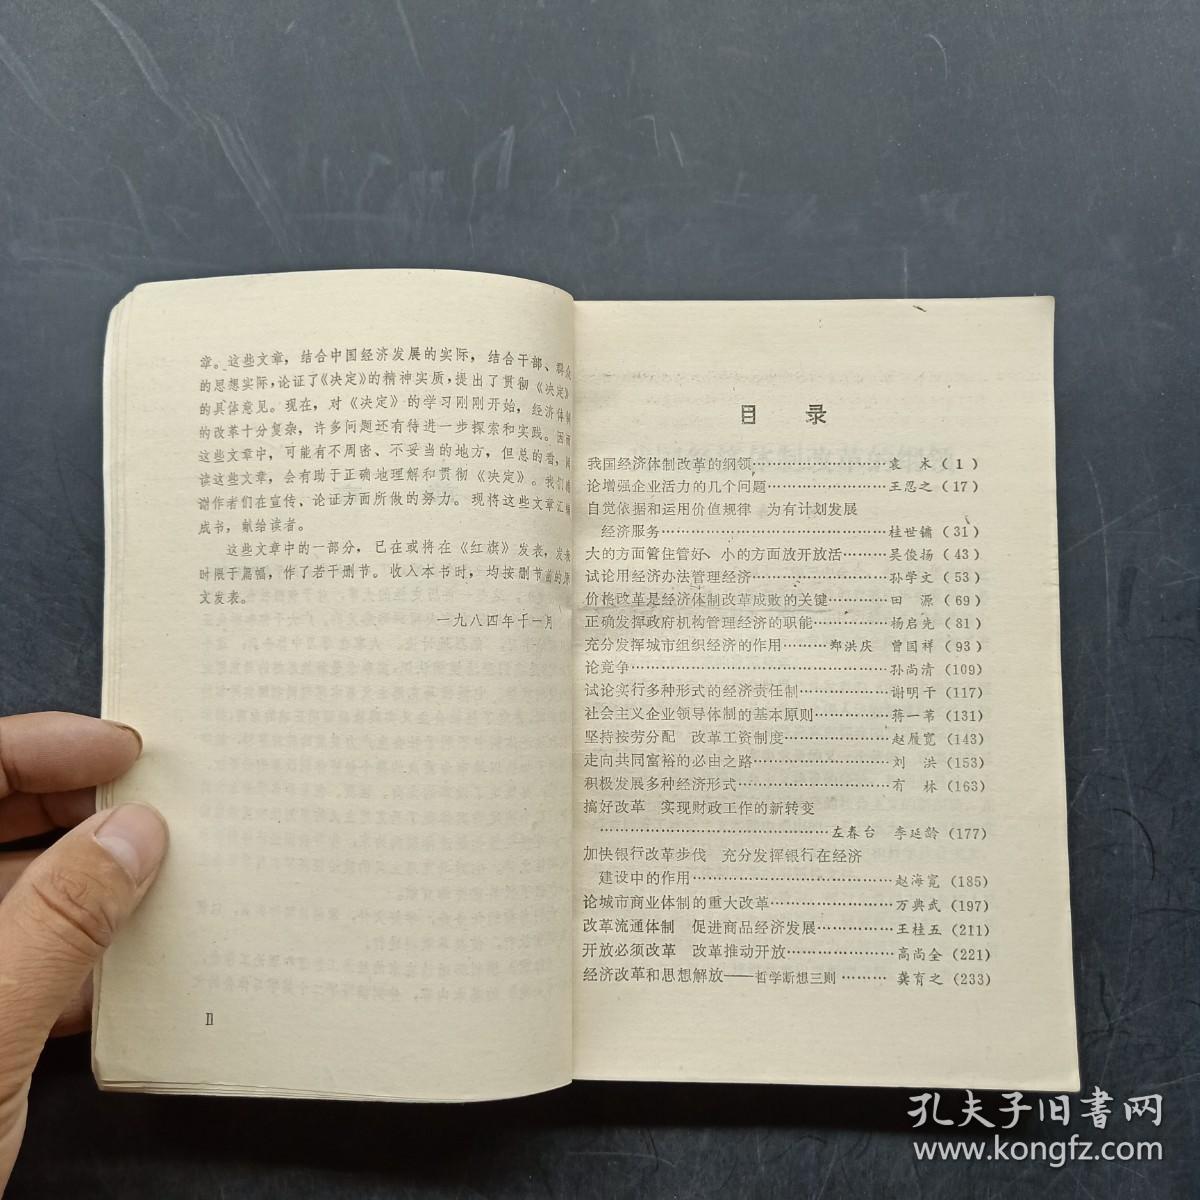 章。这些文章，结合中国经济发展的实际，结合干部、群众
的思想实际，论证了《决定》的精神实质，提出了贯彻《决定》
的具体意见。现在，对《决定》的学习刚刚开始，经济体制
的改革十分复杂，许多问题还有待进一步探索和实践。因而
这些文章中，可能有不周密、不妥当的地方，但总的看，阅
读这些文章，会有助于正确地理解和贯彻《决定》。我们感
谢作者们在宣传、论证方面所做的努力。现将这些文章汇编
成书，献给读者。
这些文章中的一部分，已在或将在《红旗》发表，发表
时限于篇幅，作了若干删节。收入本书时，均按删节前的原
文发表。
一九八四年十一月
II
目 录
我国经济体制改革的纲领……………………袁 木（1）
论增强企业活力的几个问题………………王忍之（17）
自觉依据和运用价值规律 为有计划发展
经济服务………………………………桂世镛（31）
大的方面管住管好、小的方面放开放活……吴俊扬（43）
试论用经济办法管理经济…………………孙学文（53）
价格改革是经济体制改革成败的关键………田 源（69）
正确发挥政府机构管理经济的职能…………杨启先（81）
充分发挥城市组织经济的作用………郑洪庆 曾国祥（93）
论竞争………………………………………孙尚清（109）
试论实行多种形式的经济责任制……………谢明干（117）
社会主义企业领导体制的基本原则…………蒋一苇（131）
坚持按劳分配 改革工资制度………………赵履宽（143）
走向共同富裕的必由之路……………………刘 洪（153）
积极发展多种经济形式………………………有 林（163）
搞好改革 实现财政工作的新转变
………………………………………左春台 李延龄（177）
加快银行改革步伐 充分发挥银行在经济
建设中的作用………………………………赵海宽（185）
论城市商业体制的重大改革…………………万典武（197）
改革流通体制 促进商品经济发展……………王桂五（211）
开放必须改革 改革推动开放…………………高尚全（221）
经济改革和思想解放——哲学断想三则………龚育之（233）
孔夫子旧書网
www.kongfz.com